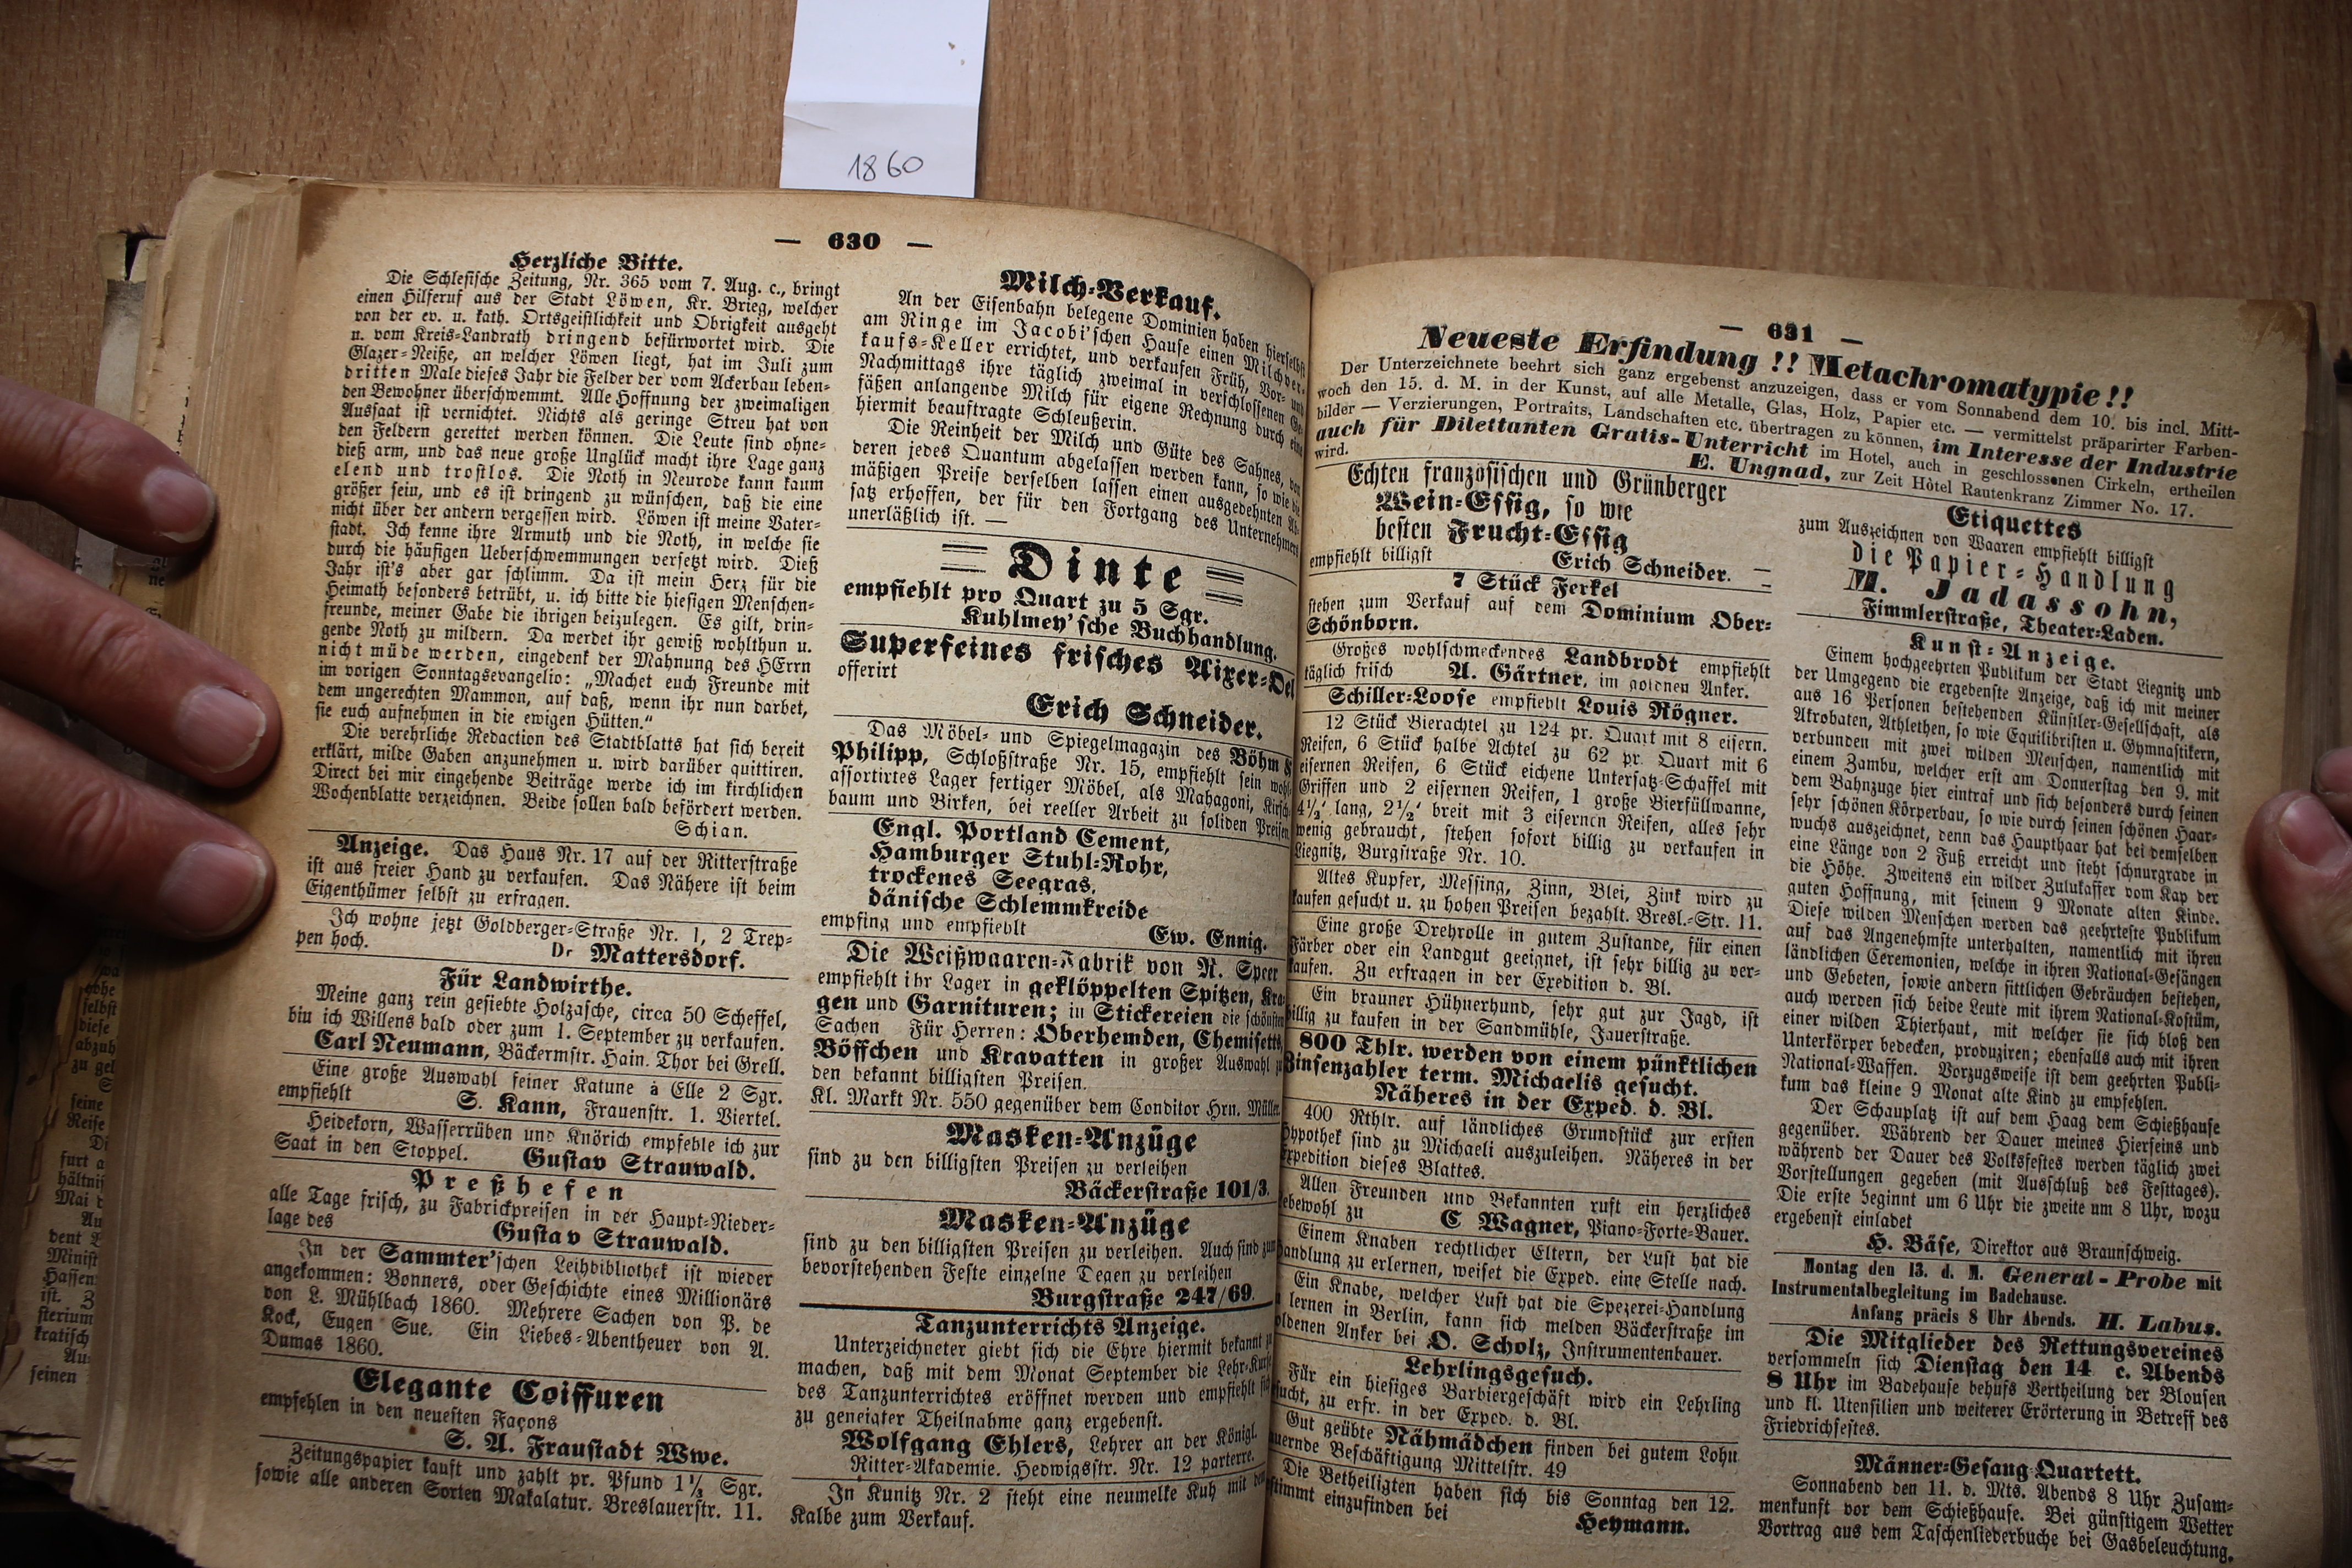 1860
— 630 —
Herzliche Bitte.
Die Schlesische Zeitung, Nr. 365 vom 7. Aug. c., bringt
einen Hilferuf aus der Stadt Löwen, Kr. Brieg, welcher
von der ev. u. kath. Ortsgeistlichkeit und Obrigkeit ausgeht
u. vom Kreis-Landrath dringend befürwortet wird. Die
Glazer-Neiße, an welcher Löwen liegt, hat im Juli zum
dritten Male dieses Jahr die Felder der vom Ackerbau leben-
den Bewohner überschwemmt. Alle Hoffnung der zweimaligen
Aussaat ist vernichtet. Nichts als geringe Streu hat von
den Feldern gerettet werden können. Die Leute sind ohne-
dieß arm, und das neue große Unglück macht ihre Lage ganz
elend und trostlos. Die Noth in Neurode kann kaum
größer sein, und es ist dringend zu wünschen, daß die eine
nicht über der andern vergessen wird. Löwen ist meine Vater-
stadt. Ich kenne ihre Armuth und die Noth, in welche sie
durch die häufigen Ueberschwemmungen versetzt wird. Dieß
Jahr ist's aber gar schlimm. Da ist mein Herz für die
Heimath besonders betrübt, u. ich bitte die hiesigen Menschen-
freunde, meiner Gabe die ihrigen beizulegen. Es gilt, drin-
gende Noth zu mildern. Da werdet ihr gewiß wohlthun u.
nicht müde werden, eingedenk der Mahnung des HErrn
im vorigen Sonntagsevangelio: „Machet euch Freunde mit
dem ungerechten Mammon, auf daß, wenn ihr nun darbet,
sie euch aufnehmen in die ewigen Hütten.“
Die verehrliche Redaction des Stadtblatts hat sich bereit
erklärt, milde Gaben anzunehmen u. wird darüber quittiren.
Direct bei mir eingehende Beiträge werde ich im kirchlichen
Wochenblatte verzeichnen. Beide sollen bald befördert werden.
Schian.
Anzeige. Das Haus Nr. 17 auf der Ritterstraße
ist aus freier Hand zu verkaufen. Das Nähere ist beim
Eigenthümer selbst zu erfragen.
Ich wohne jetzt Goldberger-Straße Nr. 1, 2 Trep-
pen hoch. Dr Mattersdorf.
Für Landwirthe.
Meine ganz rein gesiebte Holzasche, circa 50 Scheffel,
bin ich Willens bald oder zum 1. September zu verkaufen.
Carl Neumann, Bäckermstr. Hain. Thor bei Grell.
Eine große Auswahl feiner Katune à Elle 2 Sgr.
empfiehlt S. Kann, Frauenstr. 1. Viertel.
Heidekorn, Wasserrüben und Knörich empfehle ich zur
Saat in den Stoppel. Gustav Strauwald.
Preßhefen
alle Tage frisch, zu Fabrickpreisen in der Haupt-Nieder-
lage des Gustav Strauwald.
In der Sammter'schen Leihbibliothek ist wieder
angekommen: Bonners, oder Geschichte eines Millionärs
von L. Mühlbach 1860. Mehrere Sachen von P. de
Kock, Eugen Sue. Ein Liebes-Abentheuer von A.
Dumas 1860.
Elegante Coiffuren
empfehlen in den neuesten Façons
S. A. Fraustadt Wwe.
Zeitungspapier kauft und zahlt pr. Pfund 1⅓ Sgr.
sowie alle anderen Sorten Makalatur. Breslauerstr. 11.
Milch-Verkauf.
An der Eisenbahn belegene Dominien haben hierselbst
am Ringe im Jacobi'schen Hause einen Milchver-
kaufs-Keller errichtet, und verkaufen Früh, Vor- und
Nachmittags ihre täglich zweimal in verschlossenen Ge-
fäßen anlangende Milch für eigene Rechnung durch eine
hiermit beauftragte Schleußerin.
Die Reinheit der Milch und Güte des Sahnes, von
deren jedes Quantum abgelassen werden kann, so wie die
mäßigen Preise derselben lassen einen ausgedehnten Ab-
satz erhoffen, der für den Fortgang des Unternehmens
unerläßlich ist. —
Dinte
empfiehlt pro Quart zu 5 Sgr.
Kuhlmey'sche Buchhandlung.
Superfeines frisches Aixer-Oel
offerirt
Erich Schneider.
Das Möbel- und Spiegelmagazin des Böhm &
Philipp, Schloßstraße Nr. 15, empfiehlt sein wohl
assortirtes Lager fertiger Möbel, als Mahagoni, Kirsch-
baum und Birken, bei reeller Arbeit zu soliden Preisen
Engl. Portland Cement,
Hamburger Stuhl-Rohr,
trockenes Seegras,
dänische Schlemmkreide
empfing und empfiehlt Ew. Ennig.
Die Weißwaaren-Fabrik von N. Speer
empfiehlt ihr Lager in geklöppelten Spitzen, Kra-
gen und Garnituren; in Stickereien die schönsten
Sachen Für Herren: Oberhemden, Chemisetts,
Böffchen und Kravatten in großer Auswahl zu
den bekannt billigsten Preisen.
Kl. Markt Nr. 550 gegenüber dem Conditor Hrn. Müller.
Masken-Anzüge
sind zu den billigsten Preisen zu verleihen
Bäckerstraße 101/3.
Masken-Anzüge
sind zu den billigsten Preisen zu verleihen. Auch sind zum
bevorstehenden Feste einzelne Degen zu verleihen
Burgstraße 247/69.
Tanzunterrichts Anzeige.
Unterzeichneter giebt sich die Ehre hiermit bekannt zu
machen, daß mit dem Monat September die Lehr-Kurse
des Tanzunterrichtes eröffnet werden und empfiehlt sich
zu geneigter Theilnahme ganz ergebenst.
Wolfgang Ehlers, Lehrer an der Königl.
Ritter-Akademie. Hedwigsstr. Nr. 12 parterre.
In Kunitz Nr. 2 steht eine neumelke Kuh mit dem
Kalbe zum Verkauf.
— 631 —
Neueste Erfindung!! Metachromatypie!!
Der Unterzeichnete beehrt sich ganz ergebenst anzuzeigen, dass er vom Sonnabend dem 10. bis incl. Mitt-
woch den 15. d. M. in der Kunst, auf alle Metalle, Glas, Holz, Papier etc. — vermittelst präparirter Farben-
bilder — Verzierungen, Portraits, Landschaften etc. übertragen zu können, im Interesse der Industrie
auch für Dilettanten Gratis-Unterricht im Hotel, auch in geschlossenen Cirkeln, ertheilen
wird. E. Ungnad, zur Zeit Hôtel Rautenkranz Zimmer No. 17.
Echten französischen und Grünberger
Wein-Essig, so wie
besten Frucht-Essig
empfiehlt billigst Erich Schneider.
7 Stück Ferkel
stehen zum Verkauf auf dem Dominium Ober-
Schönborn.
Großes wohlschmeckendes Landbrodt empfiehlt
täglich frisch A. Gärtner, im goldnen Anker.
Schiller-Loose empfiehlt Louis Rögner.
12 Stück Bierachtel zu 124 pr. Quart mit 8 eisern.
Reifen, 6 Stück halbe Achtel zu 62 pr. Quart mit 6
eisernen Reifen, 6 Stück eichene Untersatz-Schaffel mit
Griffen und 2 eisernen Reifen, 1 große Bierfüllwanne,
4½' lang, 2½' breit mit 3 eisernen Reifen, alles sehr
wenig gebraucht, stehen sofort billig zu verkaufen in
Liegnitz, Burgstraße Nr. 10.
Altes Kupfer, Messing, Zinn, Blei, Zink wird zu
kaufen gesucht u. zu hohen Preisen bezahlt. Bresl.-Str. 11.
Eine große Drehrolle in gutem Zustande, für einen
Färber oder ein Landgut geeignet, ist sehr billig zu ver-
kaufen. Zu erfragen in der Expedition d. Bl.
Ein brauner Hühnerhund, sehr gut zur Jagd, ist
billig zu kaufen in der Sandmühle, Jauerstraße.
800 Thlr. werden von einem pünktlichen
Zinsenzahler term. Michaelis gesucht.
Näheres in der Exped. d. Bl.
400 Rthlr. auf ländliches Grundstück zur ersten
Hypothek sind zu Michaeli auszuleihen. Näheres in der
Expedition dieses Blattes.
Allen Freunden und Bekannten ruft ein herzliches
Lebewohl zu C Wagner, Piano-Forte-Bauer.
Einem Knaben rechtlicher Eltern, der Lust hat die
Handlung zu erlernen, weiset die Exped. eine Stelle nach.
Ein Knabe, welcher Lust hat die Spezerei-Handlung
lernen in Berlin, kann sich melden Bäckerstraße im
goldenen Anker bei O. Scholz, Instrumentenbauer.
Lehrlingsgesuch.
Für ein hiesiges Barbiergeschäft wird ein Lehrling
gesucht, zu erfr. in der Exped. d. Bl.
Gut geübte Nähmädchen finden bei gutem Lohn
dauernde Beschäftigung Mittelstr. 49
Die Betheiligten haben sich bis Sonntag den 12.
bestimmt einzufinden bei Heymann.
Etiquettes
zum Auszeichnen von Waaren empfiehlt billigst
die Papier-Handlung
M. Jadassohn,
Fimmlerstraße, Theater-Laden.
Kunst-Anzeige.
Einem hochgeehrten Publikum der Stadt Liegnitz und
der Umgegend die ergebenste Anzeige, daß ich mit meiner
aus 16 Personen bestehenden Künstler-Gesellschaft, als
Akrobaten, Athlethen, so wie Equilibristen u. Gymnastikern,
verbunden mit zwei wilden Menschen, namentlich mit
einem Zambu, welcher erst am Donnerstag den 9. mit
dem Bahnzuge hier eintraf und sich besonders durch seinen
sehr schönen Körperbau, so wie durch seinen schönen Haar-
wuchs auszeichnet, denn das Haupthaar hat bei demselben
eine Länge von 2 Fuß erreicht und steht schnurgrade in
die Höhe. Zweitens ein wilder Zulukaffer vom Kap der
guten Hoffnung, mit seinem 9 Monate alten Kinde.
Diese wilden Menschen werden das geehrteste Publikum
auf das Angenehmste unterhalten, namentlich mit ihren
ländlichen Ceremonien, welche in ihren National-Gesängen
und Gebeten, sowie andern sittlichen Gebräuchen bestehen,
auch werden sich beide Leute mit ihrem National-Kostüm,
einer wilden Thierhaut, mit welcher sie sich bloß den
Unterkörper bedecken, produziren; ebenfalls auch mit ihren
National-Waffen. Vorzugsweise ist dem geehrten Publi-
kum das kleine 9 Monat alte Kind zu empfehlen.
Der Schauplatz ist auf dem Haag dem Schießhause
gegenüber. Während der Dauer meines Hierseins und
während der Dauer des Volksfestes werden täglich zwei
Vorstellungen gegeben (mit Ausschluß des Festtages).
Die erste beginnt um 6 Uhr die zweite um 8 Uhr, wozu
ergebenst einladet
H. Bäse, Direktor aus Braunschweig.
Montag den 13. d. M. General-Probe mit
Instrumentalbegleitung im Badehause.
Anfang präcis 8 Uhr Abends. H. Labus.
Die Mitglieder des Rettungsvereines
versammeln sich Dienstag den 14 c. Abends
8 Uhr im Badehause behufs Vertheilung der Blousen
und kl. Utensilien und weiterer Erörterung in Betreff des
Friedrichsfestes.
Männer-Gesang-Quartett.
Sonnabend den 11. d. Mts. Abends 8 Uhr Zusam-
menkunft vor dem Schießhause. Bei günstigem Wetter
Vortrag aus dem Taschenliederbuche bei Gasbeleuchtung.